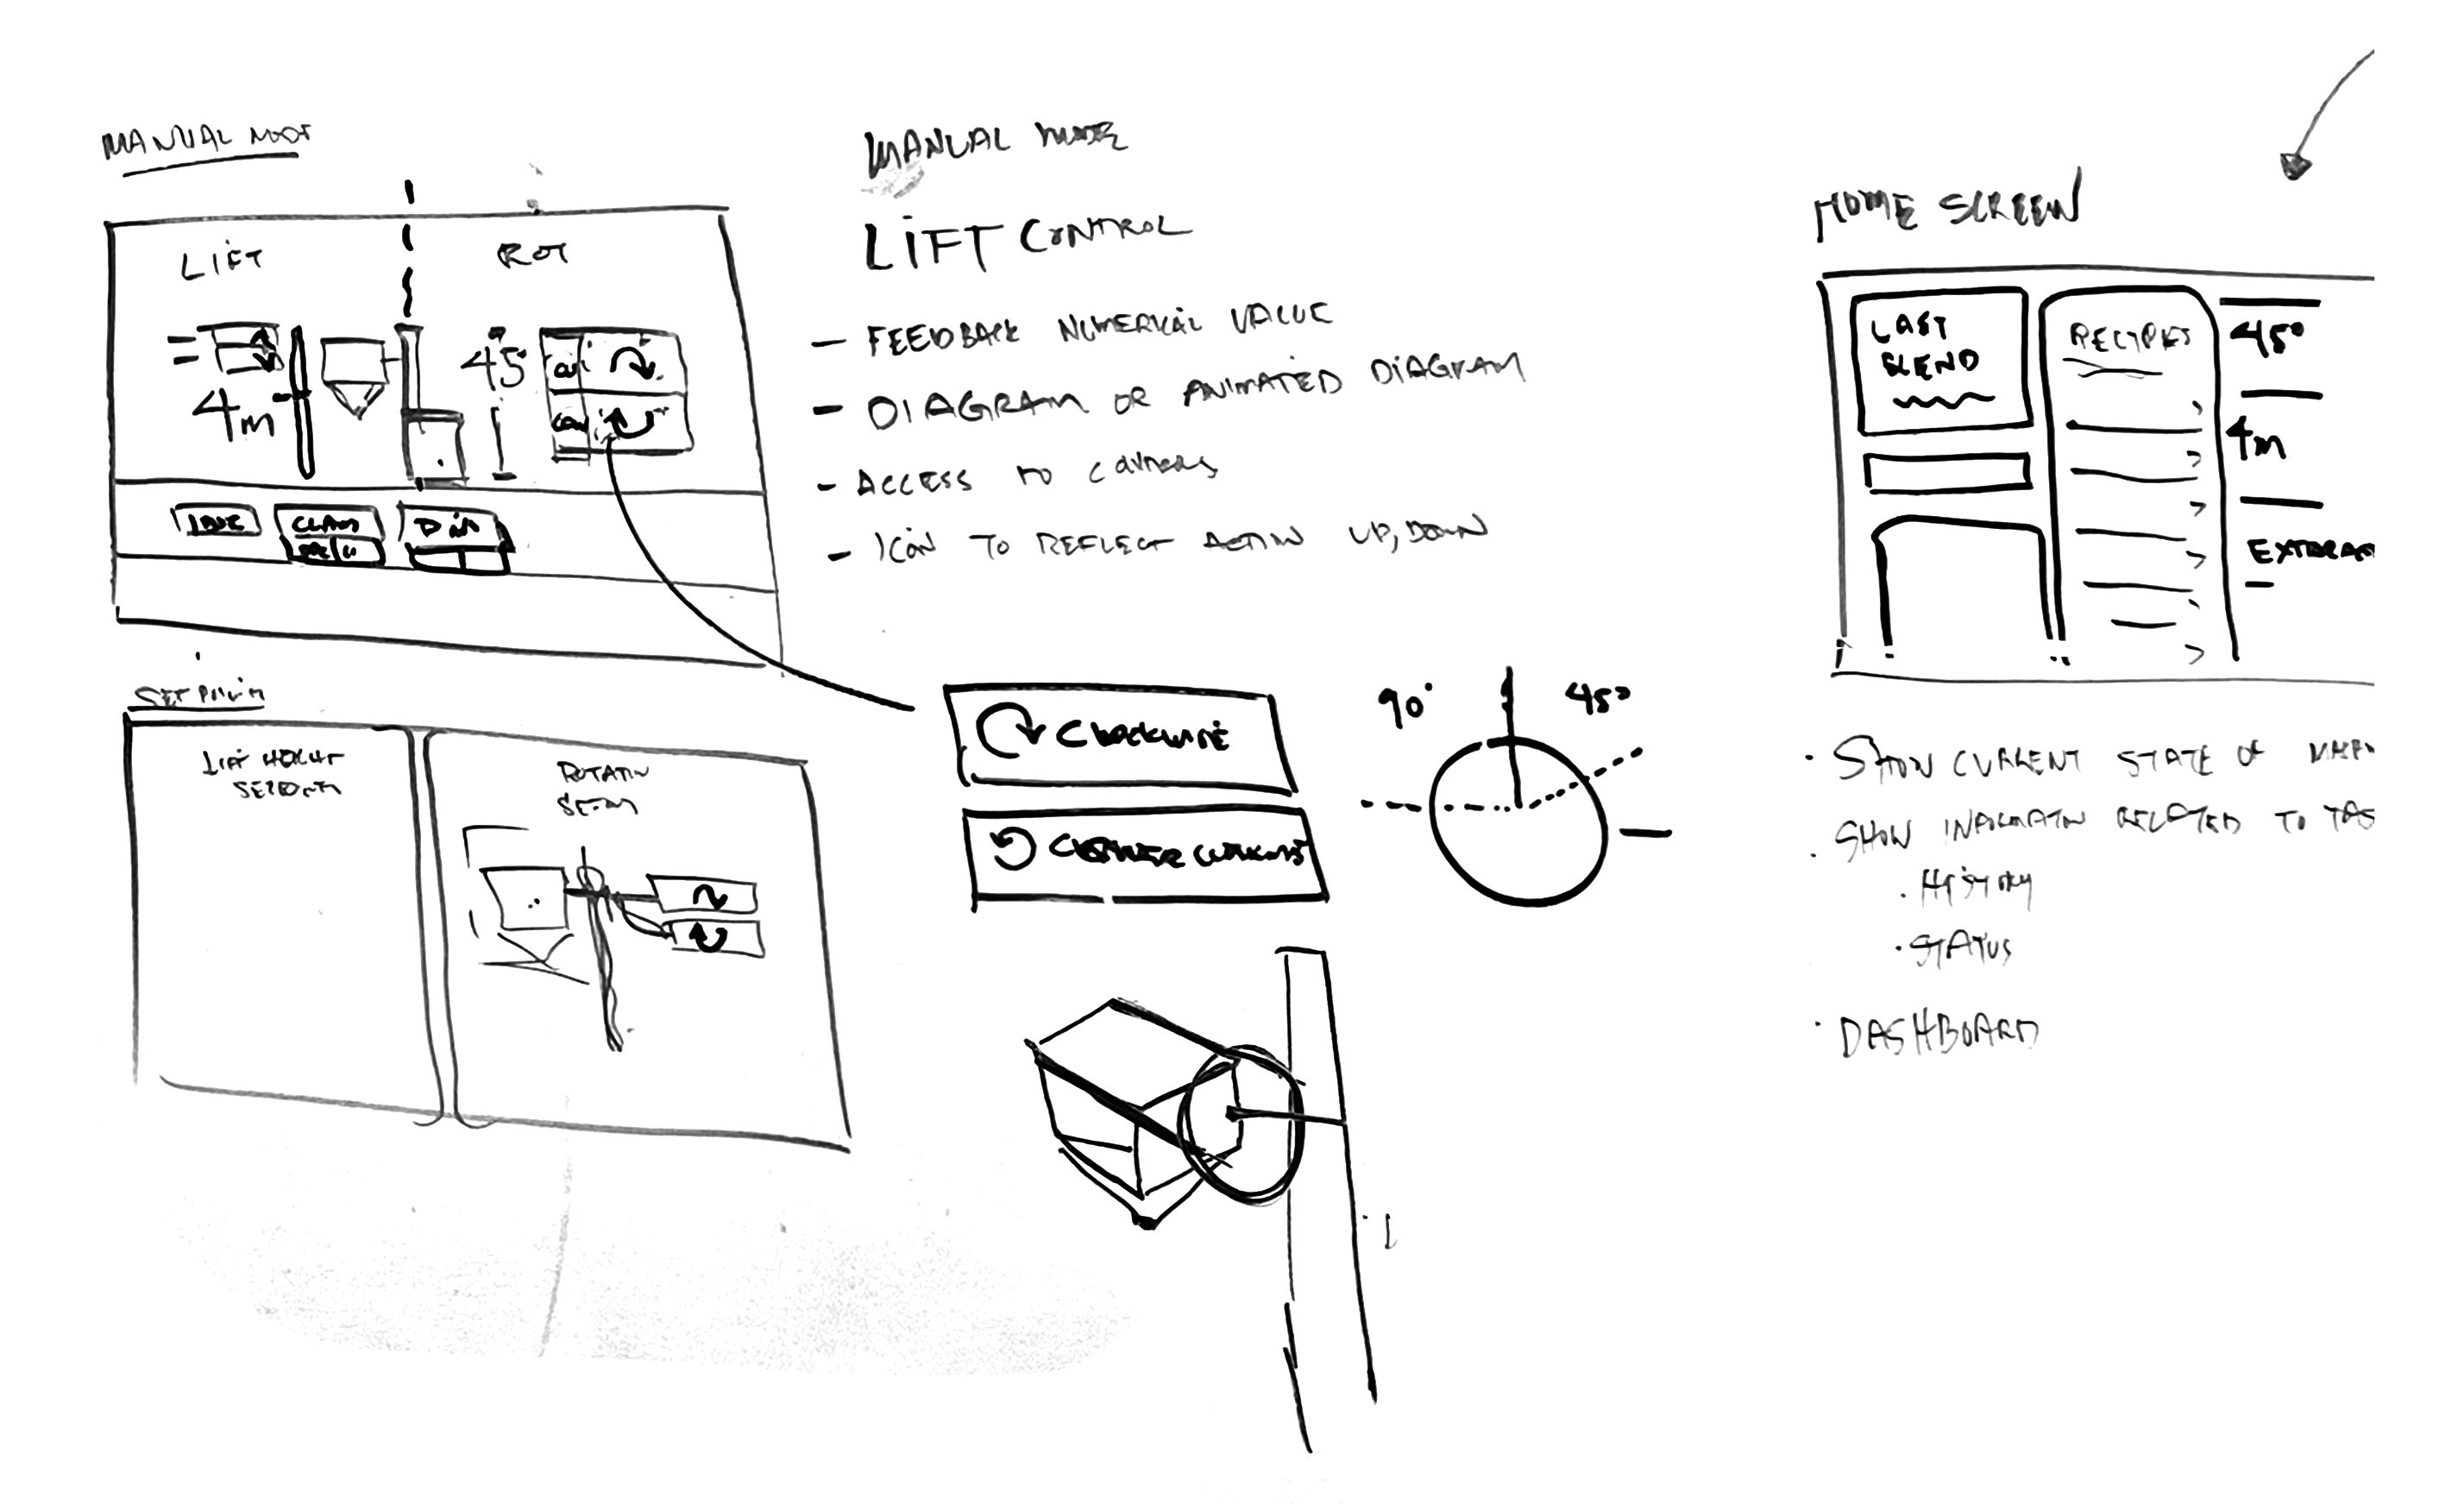 MANUAL MODE
LIFT
ROT
4m
45°
CLAMP
SET POINT
LIFT HEIGHT
ROTATION
MANUAL MODE
LIFT CONTROL
- FEEDBACK NUMERICAL VALUE
- DIAGRAM OR ANIMATED DIAGRAM
- ACCESS TO CONTROLS
- ICON TO REFLECT ACTION UP, DOWN
CLOCKWISE
COUNTER CLOCKWISE
90°
45°
HOME SCREEN
LAST
BLEND
RECIPES
45°
4m
· SHOW CURRENT STATE OF
· SHOW INFORMATION RELATED TO
· HISTORY
· STATUS
· DASHBOARD